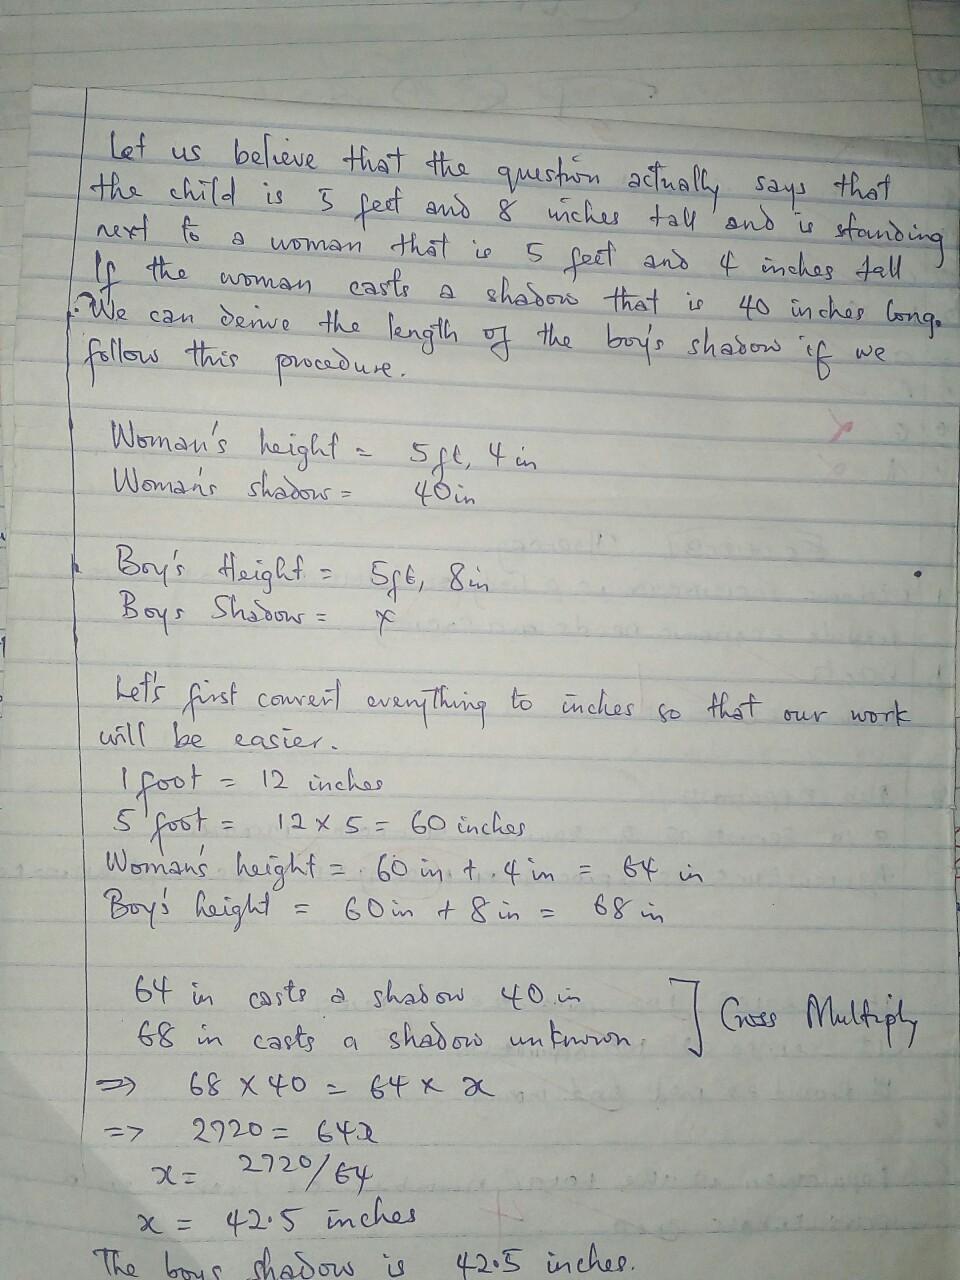 Let us believe that the question actually says that
the child is 5 feet and 8 inches tall and is standing
next to a woman that is 5 feet and 4 inches tall
If the woman casts a shadow that is 40 inches long.
We can derive the length of the boy's shadow if we
follow this procedure.
Woman's height = 5ft, 4in
Woman's shadow = 40in
Boy's Height = 5ft, 8in
Boys Shadow = x
Let's first convert everything to inches so that our work
will be easier.
1 foot = 12 inches
5 foot = 12 x 5 = 60 inches
Woman's height = 60 in + 4 in = 64 in
Boy's height = 60in + 8 in = 68 in
64 in casts a shadow 40 in
68 in casts a shadow unknown
] Cross Multiply
=> 68 x 40 = 64 x x
=> 2720 = 64x
x = 2720/64
x = 42.5 inches
The boys shadow is 42.5 inches.